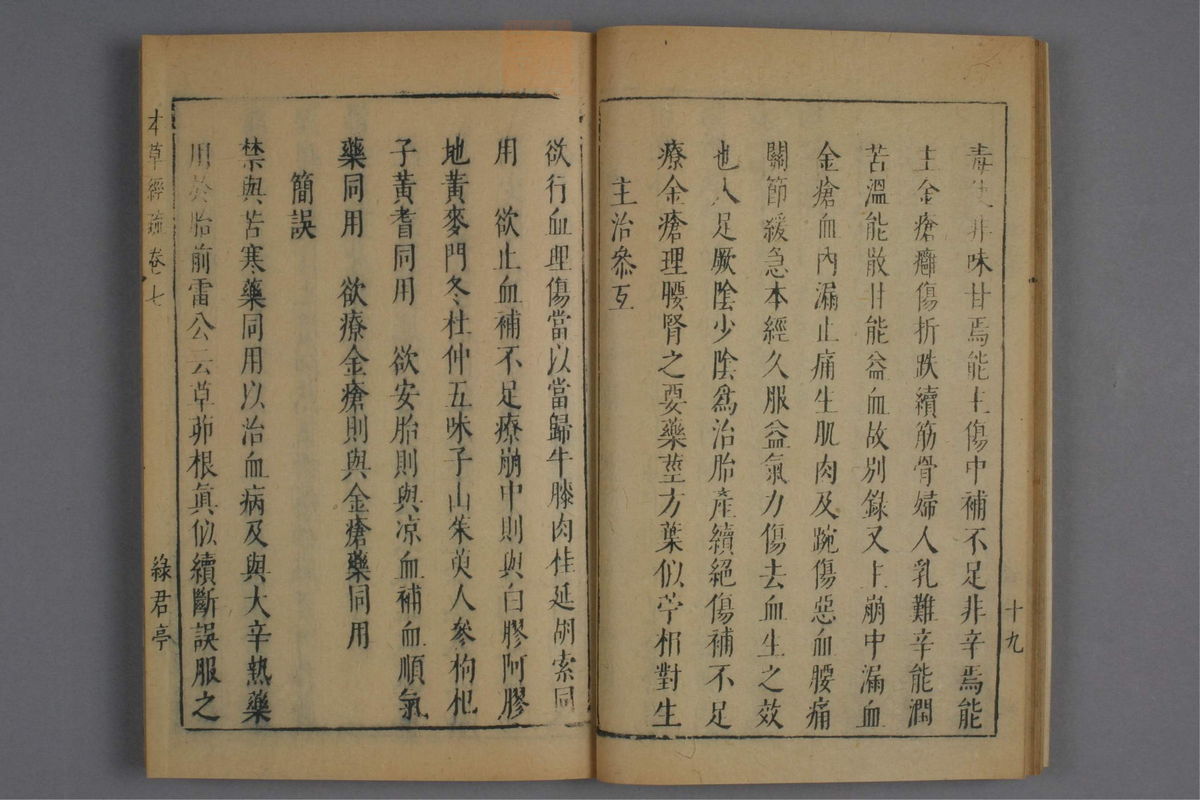 毒生非味甘焉能主傷中補不足非辛焉能
主金瘡癰傷折跌續筋骨婦人乳難辛能潤
苦溫能散甘能益血故別錄又主崩中漏血
金瘡血內漏止痛生肌肉及踠傷惡血腰痛
關節緩急本經久服益氣力傷去血生之效
也入足厥陰少陰為治胎產續絕傷補不足
療金瘡理腰腎之要藥莖方葉似苧相對生
主治參互
十九
欲行血理傷當以當歸牛膝肉桂延胡索同
用　欲止血補不足療崩中則與白膠阿膠
地黃麥門冬杜仲五味子山茱萸人參枸杞
子黃耆同用　欲安胎則與凉血補血順氣
藥同用　欲療金瘡則與金瘡藥同用
簡誤
禁與苦寒藥同用以治血病及與大辛熱藥
用於胎前雷公云草茆根真似續斷誤服之
本草經疏卷七
綠君亭